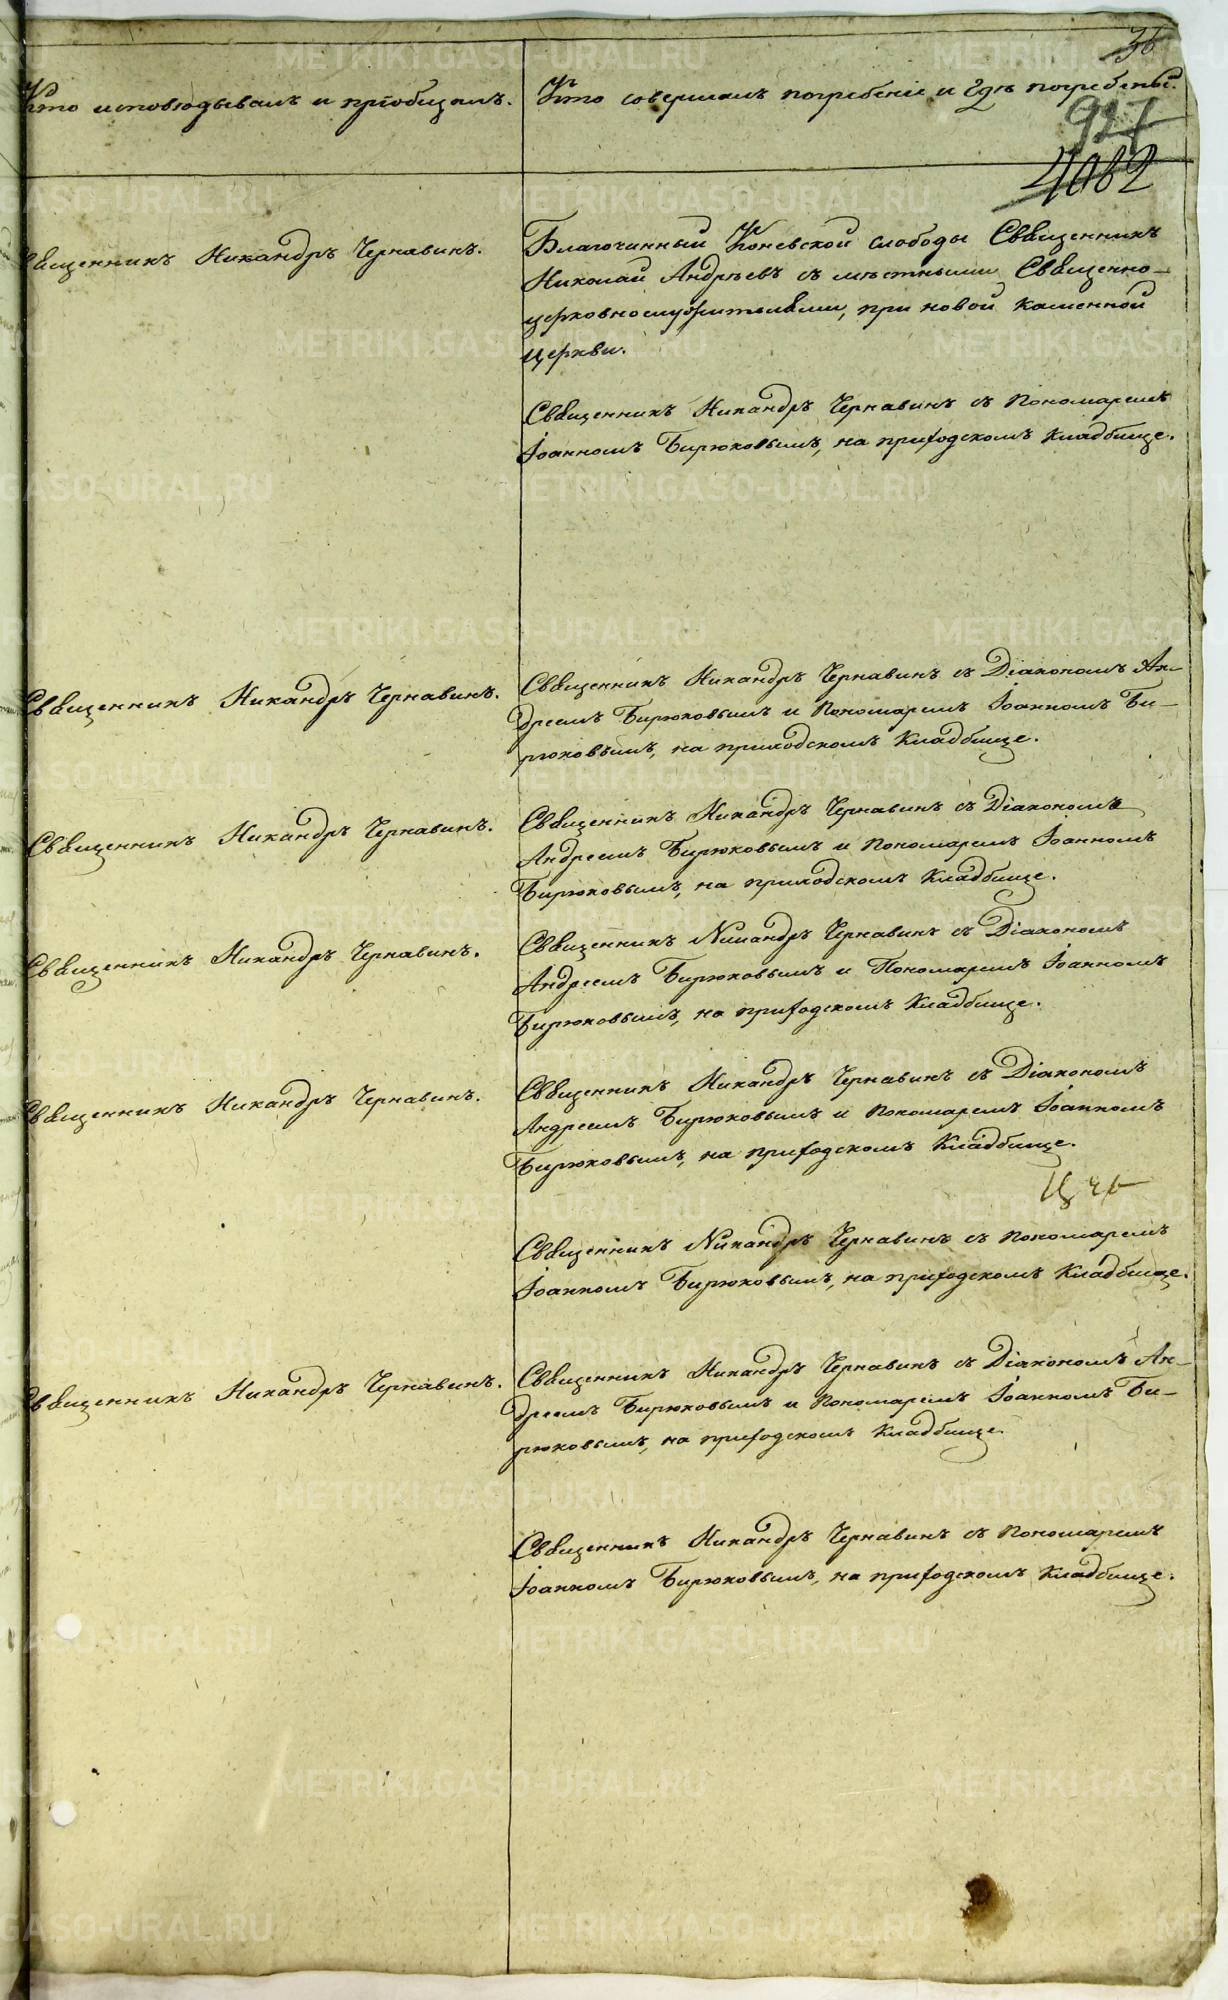 36
Кто исповѣдывалъ и пріобщалъ.
Кто совершалъ погребеніе и гдѣ погребены.
927
4082
Священникъ Никандръ Чернавинъ.
Благочинный Коневской слободы Священникъ
Николай Андрѣевъ съ мѣстными Священно-
церковнослужителями, при новой каменной
церкви.
Священникъ Никандръ Чернавинъ съ Пономаремъ
Іоанномъ Бирюковымъ, на приходскомъ кладбище.
Священникъ Никандръ Чернавинъ.
Священникъ Никандръ Чернавинъ съ Діакономъ Ан-
дреемъ Бирюковымъ и Пономаремъ Іоанномъ Би-
рюковымъ, на приходскомъ Кладбище.
Священникъ Никандръ Чернавинъ.
Священникъ Никандръ Чернавинъ съ Діакономъ
Андреемъ Бирюковымъ и Пономаремъ Іоанномъ
Бирюковымъ, на приходскомъ Кладбище.
Священникъ Никандръ Чернавинъ.
Священникъ Никандръ Чернавинъ съ Діакономъ
Андреемъ Бирюковымъ и Пономаремъ Іоанномъ
Бирюковымъ, на приходскомъ Кладбище.
Священникъ Никандръ Чернавинъ.
Священникъ Никандръ Чернавинъ съ Діакономъ
Андреемъ Бирюковымъ и Пономаремъ Іоанномъ
Бирюковымъ, на приходскомъ Кладбище.
Священникъ Никандръ Чернавинъ съ Пономаремъ
Іоанномъ Бирюковымъ, на приходскомъ Кладбище.
Священникъ Никандръ Чернавинъ.
Священникъ Никандръ Чернавинъ съ Діакономъ Ан-
дреемъ Бирюковымъ и Пономаремъ Іоанномъ Би-
рюковымъ, на приходскомъ Кладбище.
Священникъ Никандръ Чернавинъ съ Пономаремъ
Іоанномъ Бирюковымъ, на приходскомъ Кладбище.
METRIKI.GASO-URAL.RU